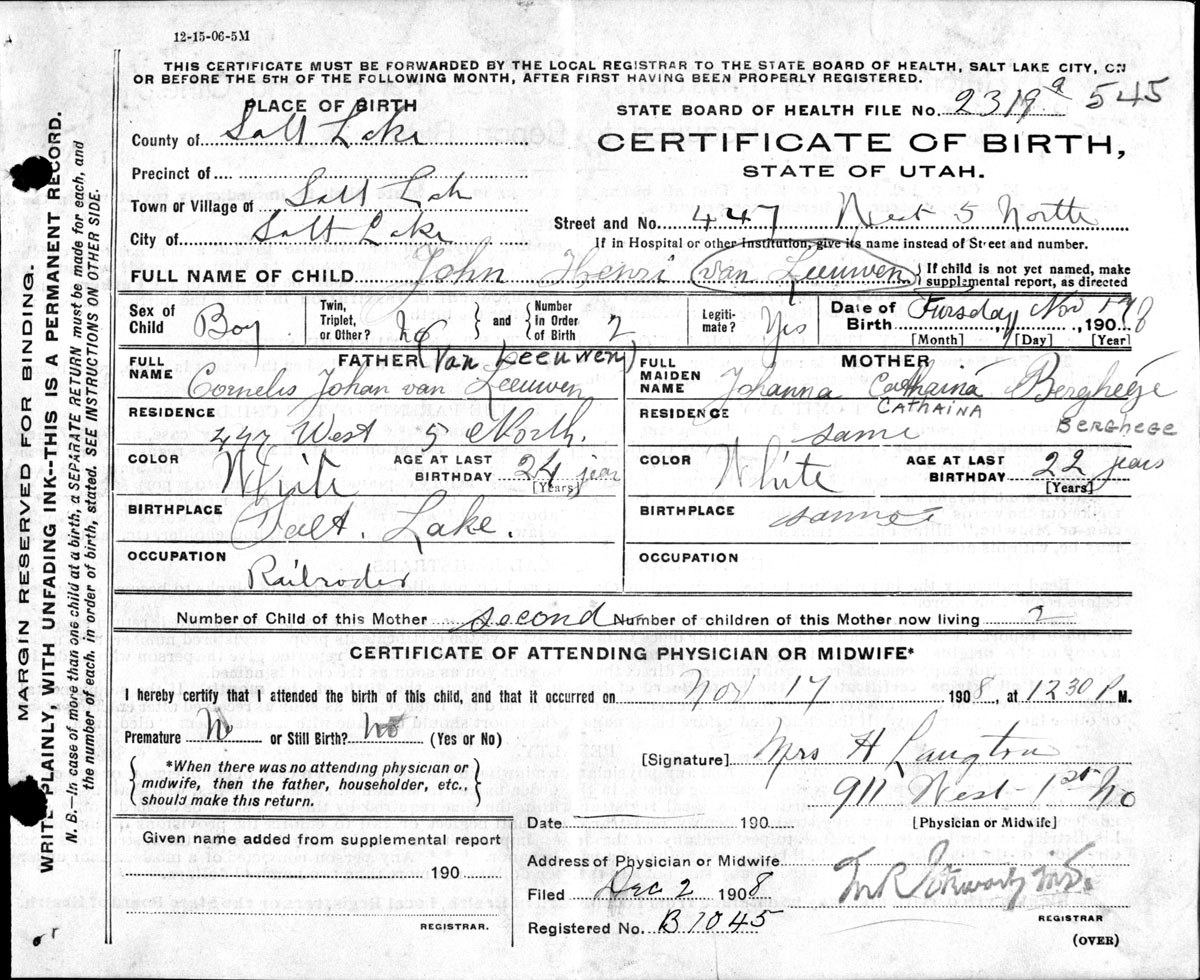 12-15-06-5M
THIS CERTIFICATE MUST BE FORWARDED BY THE LOCAL REGISTRAR TO THE STATE BOARD OF HEALTH, SALT LAKE CITY, ON
OR BEFORE THE 5TH OF THE FOLLOWING MONTH, AFTER FIRST HAVING BEEN PROPERLY REGISTERED.
PLACE OF BIRTH
STATE BOARD OF HEALTH FILE No. 2319 a 545
County of Salt Lake
CERTIFICATE OF BIRTH,
Precinct of
STATE OF UTAH.
Town or Village of Salt Lak
Street and No. 447 West 5 North
City of Salt Lake
If in Hospital or other Institution, give its name instead of Street and number.
FULL NAME OF CHILD John Henri (van Leeuwen) If child is not yet named, make supplemental report, as directed
Sex of Child Boy
Twin, Triplet, or Other? No and Number in Order of Birth 2
Legitimate? Yes
Date of Birth Tursday Nov 17, 1908
[Month] [Day] [Year]
FATHER (Van Leeuwen)
FULL NAME Cornelis Johan van Leeuwen
RESIDENCE 447 West 5 North.
COLOR White AGE AT LAST BIRTHDAY 24 years
[Years]
BIRTHPLACE Salt. Lake.
OCCUPATION Railroder
MOTHER
FULL MAIDEN NAME Johanna Cathaina Bergheége
CATHAINA BERGHEGE
RESIDENCE same
COLOR White AGE AT LAST BIRTHDAY 22 years
[Years]
BIRTHPLACE same
OCCUPATION
Number of Child of this Mother second Number of children of this Mother now living 2
CERTIFICATE OF ATTENDING PHYSICIAN OR MIDWIFE*
I hereby certify that I attended the birth of this child, and that it occurred on Nov 17 1908, at 1230 P M.
Premature No or Still Birth? No (Yes or No)
*When there was no attending physician or
midwife, then the father, householder, etc.,
should make this return.
[Signature] Mrs H Langton
911 West 1st No
Date 190 [Physician or Midwife]
Given name added from supplemental report
190
REGISTRAR.
Address of Physician or Midwife
Filed Dec 2 1908
REGISTRAR
Registered No. B1045
(OVER)
MARGIN RESERVED FOR BINDING.
WRITE PLAINLY, WITH UNFADING INK--THIS IS A PERMANENT RECORD.
N. B.—In case of more than one child at a birth, a SEPARATE RETURN must be made for each, and
the number of each, in order of birth, stated. SEE INSTRUCTIONS ON OTHER SIDE.